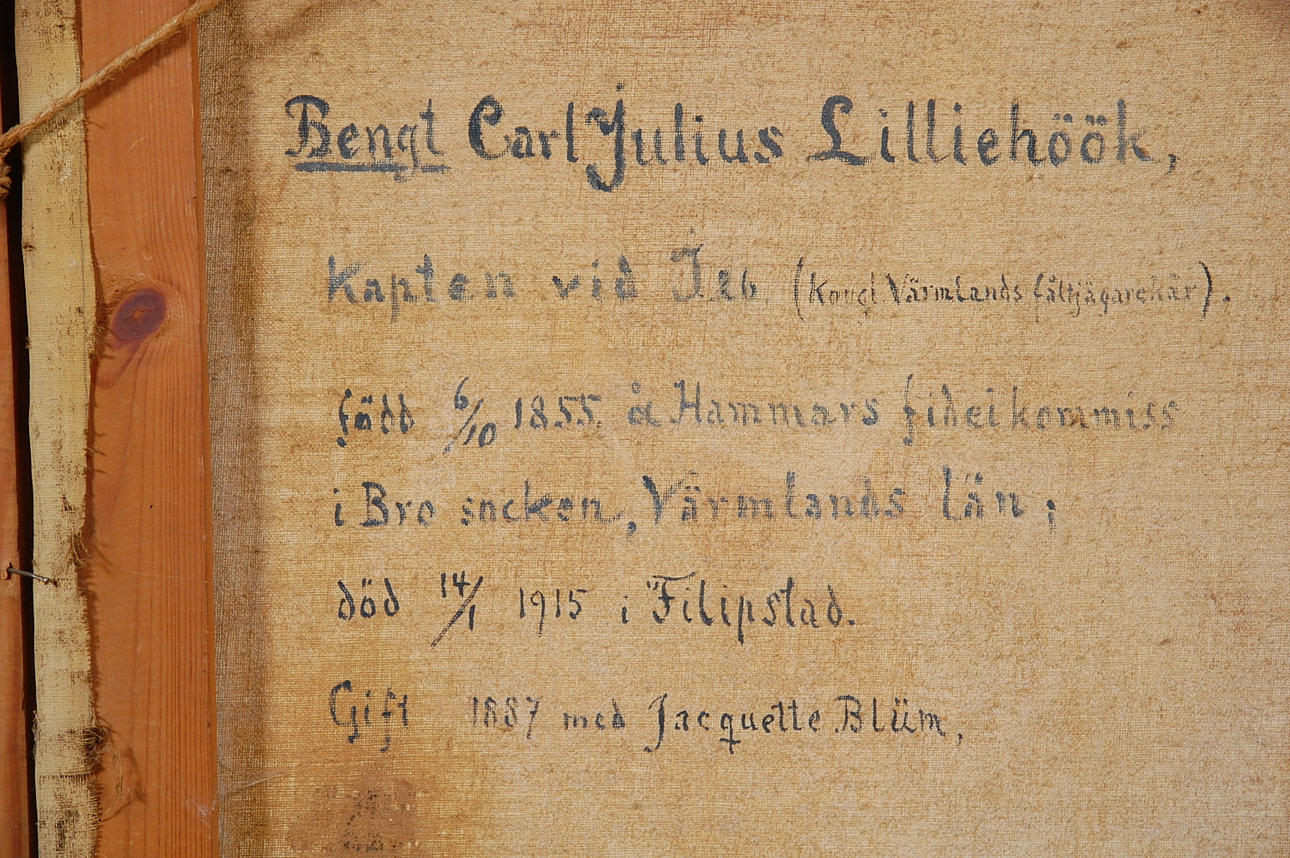 Bengt Carl Julius Lilliehöök,
Kapten vid I 26. (Kongl. Värmlands fältjägarekår).
född 6/10 1855. å Hammars fideikommiss
i Bro socken, Värmlands län;
död 14/1 1915 i Filipstad.
Gift 1887 med Jacquette Blüm,